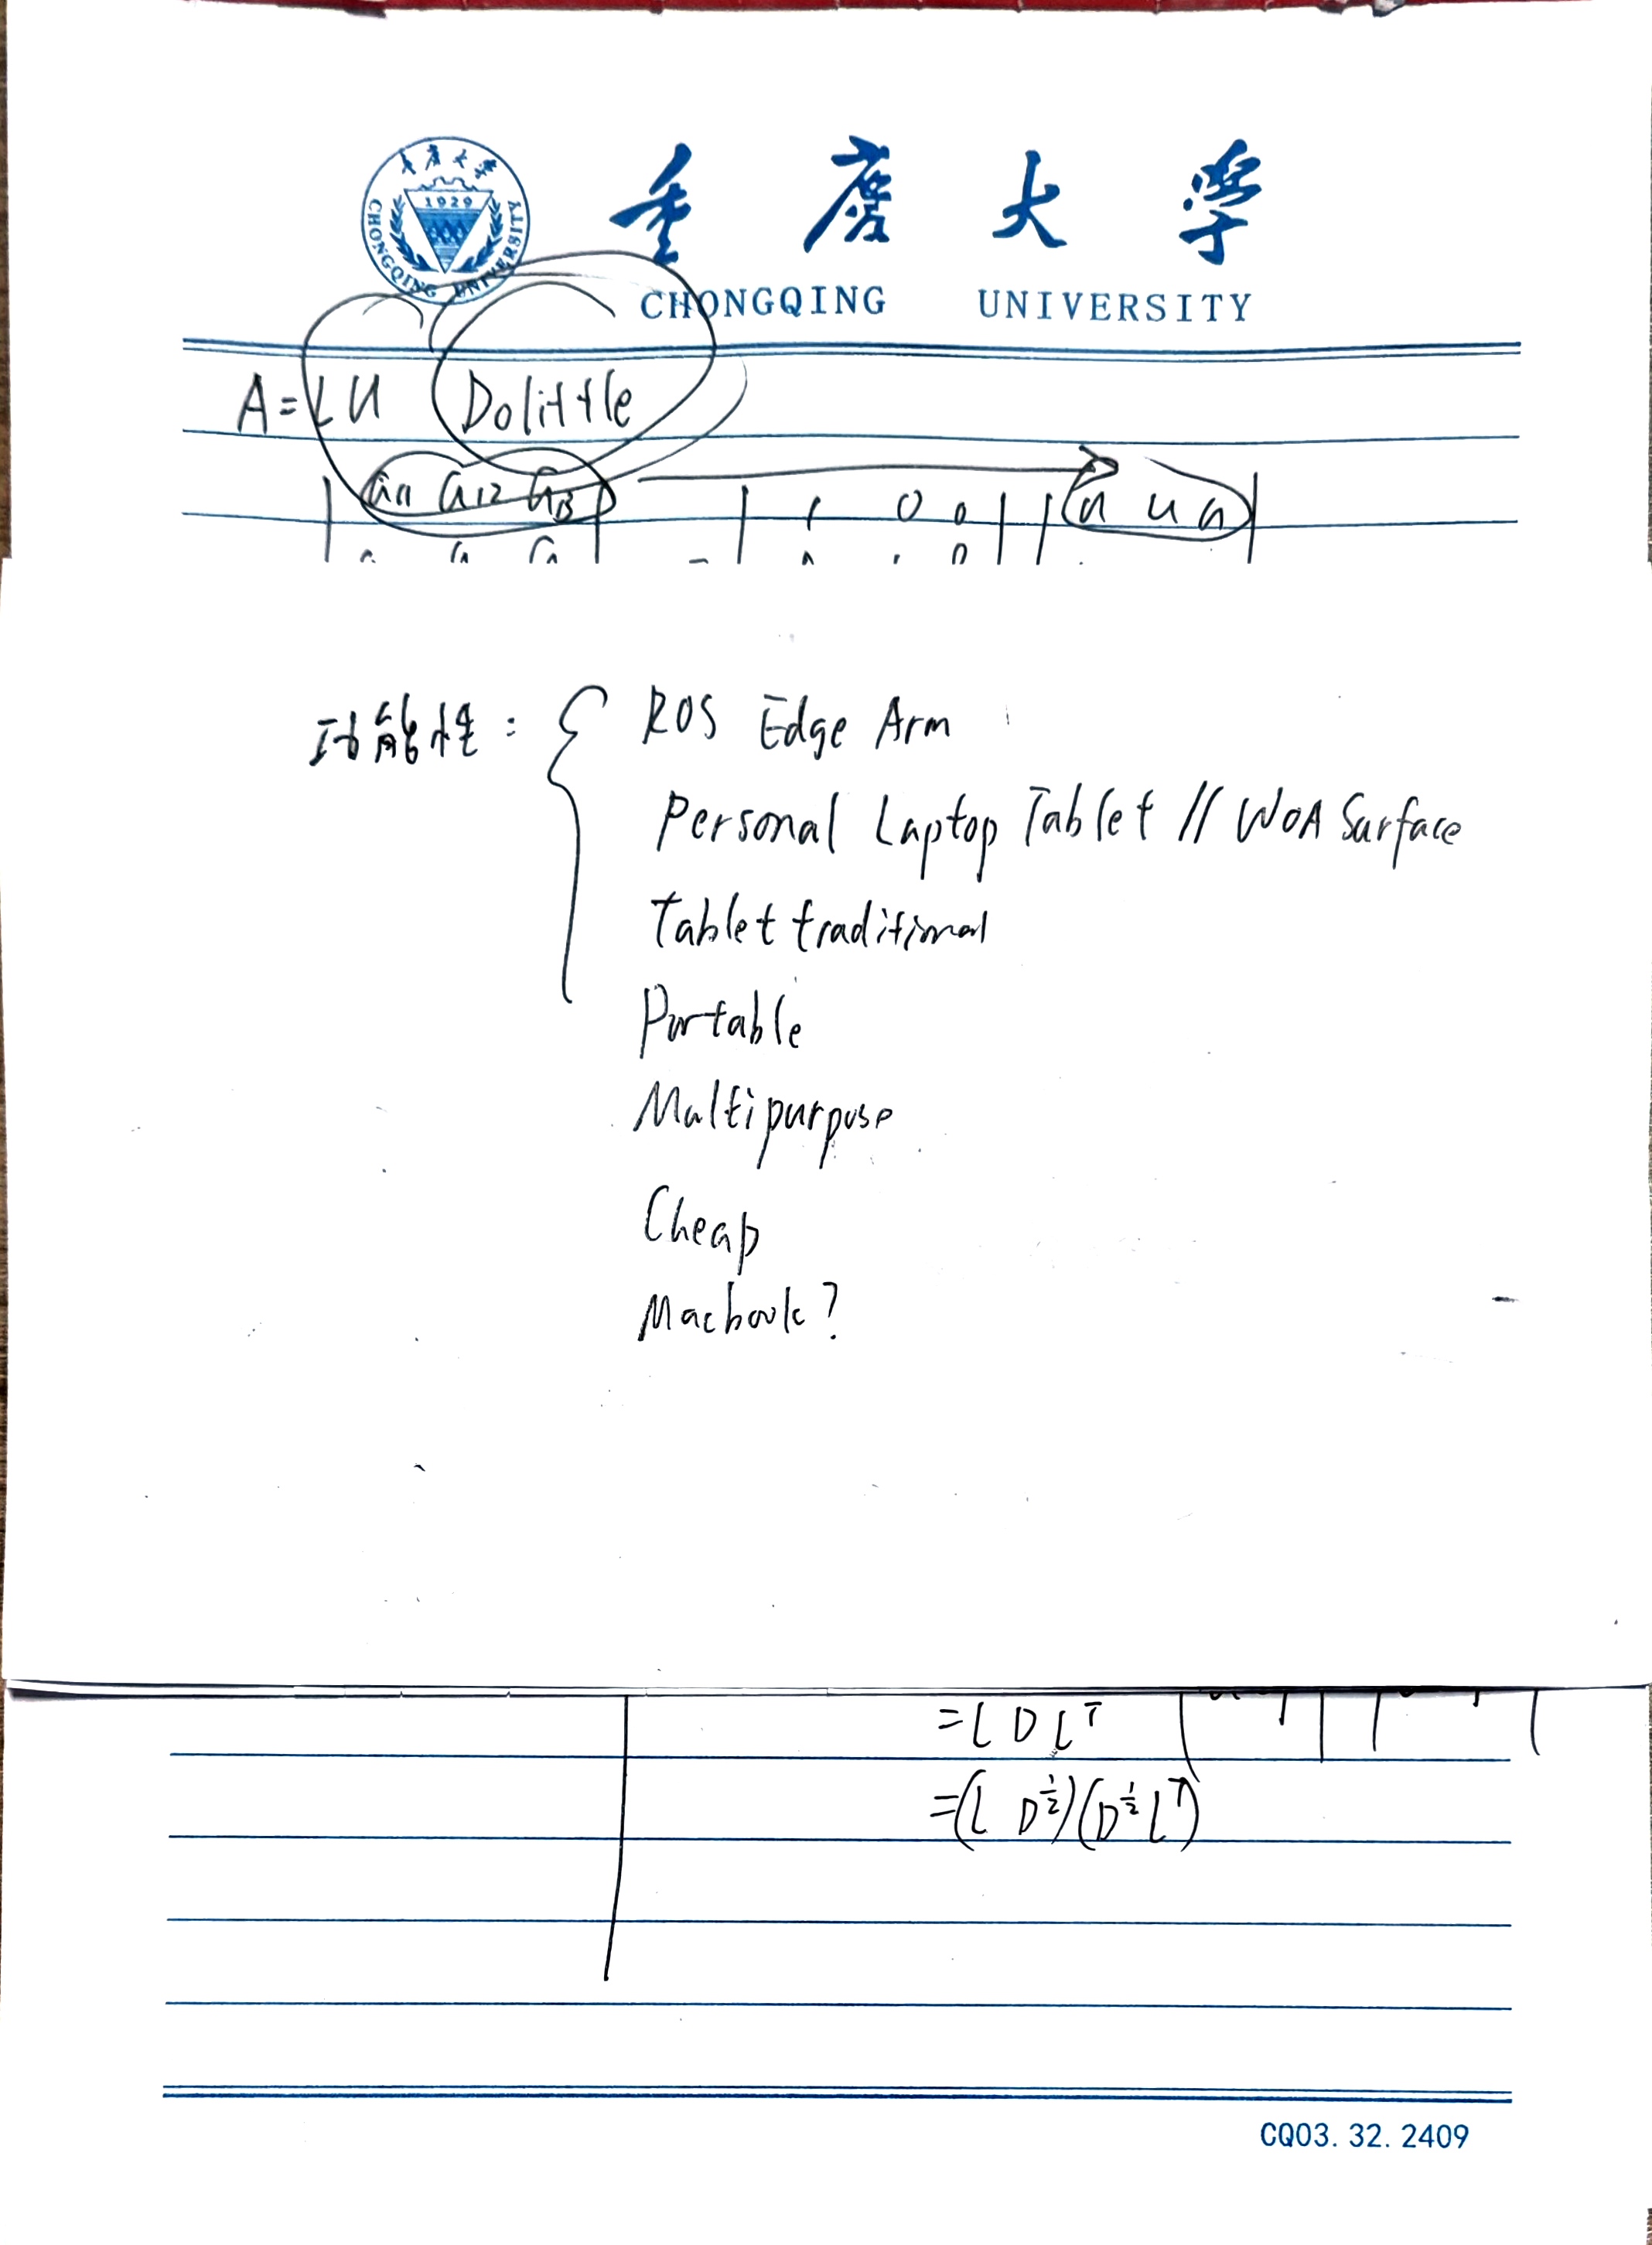 重庆大学
CHONGQING UNIVERSITY
1929
CHONGQING UNIVERSITY
A=LU Dolittle
a11 a12 a13 1 0 0 u u u
功能性: { ROS Edge Arm
Personal Laptop Tablet // WOA Surface
Tablet traditional
Portable
Multipurpose
Cheap
Macbook?
=L D L^T
=(L D^½)(D^½ L^T)
CQ03.32.2409